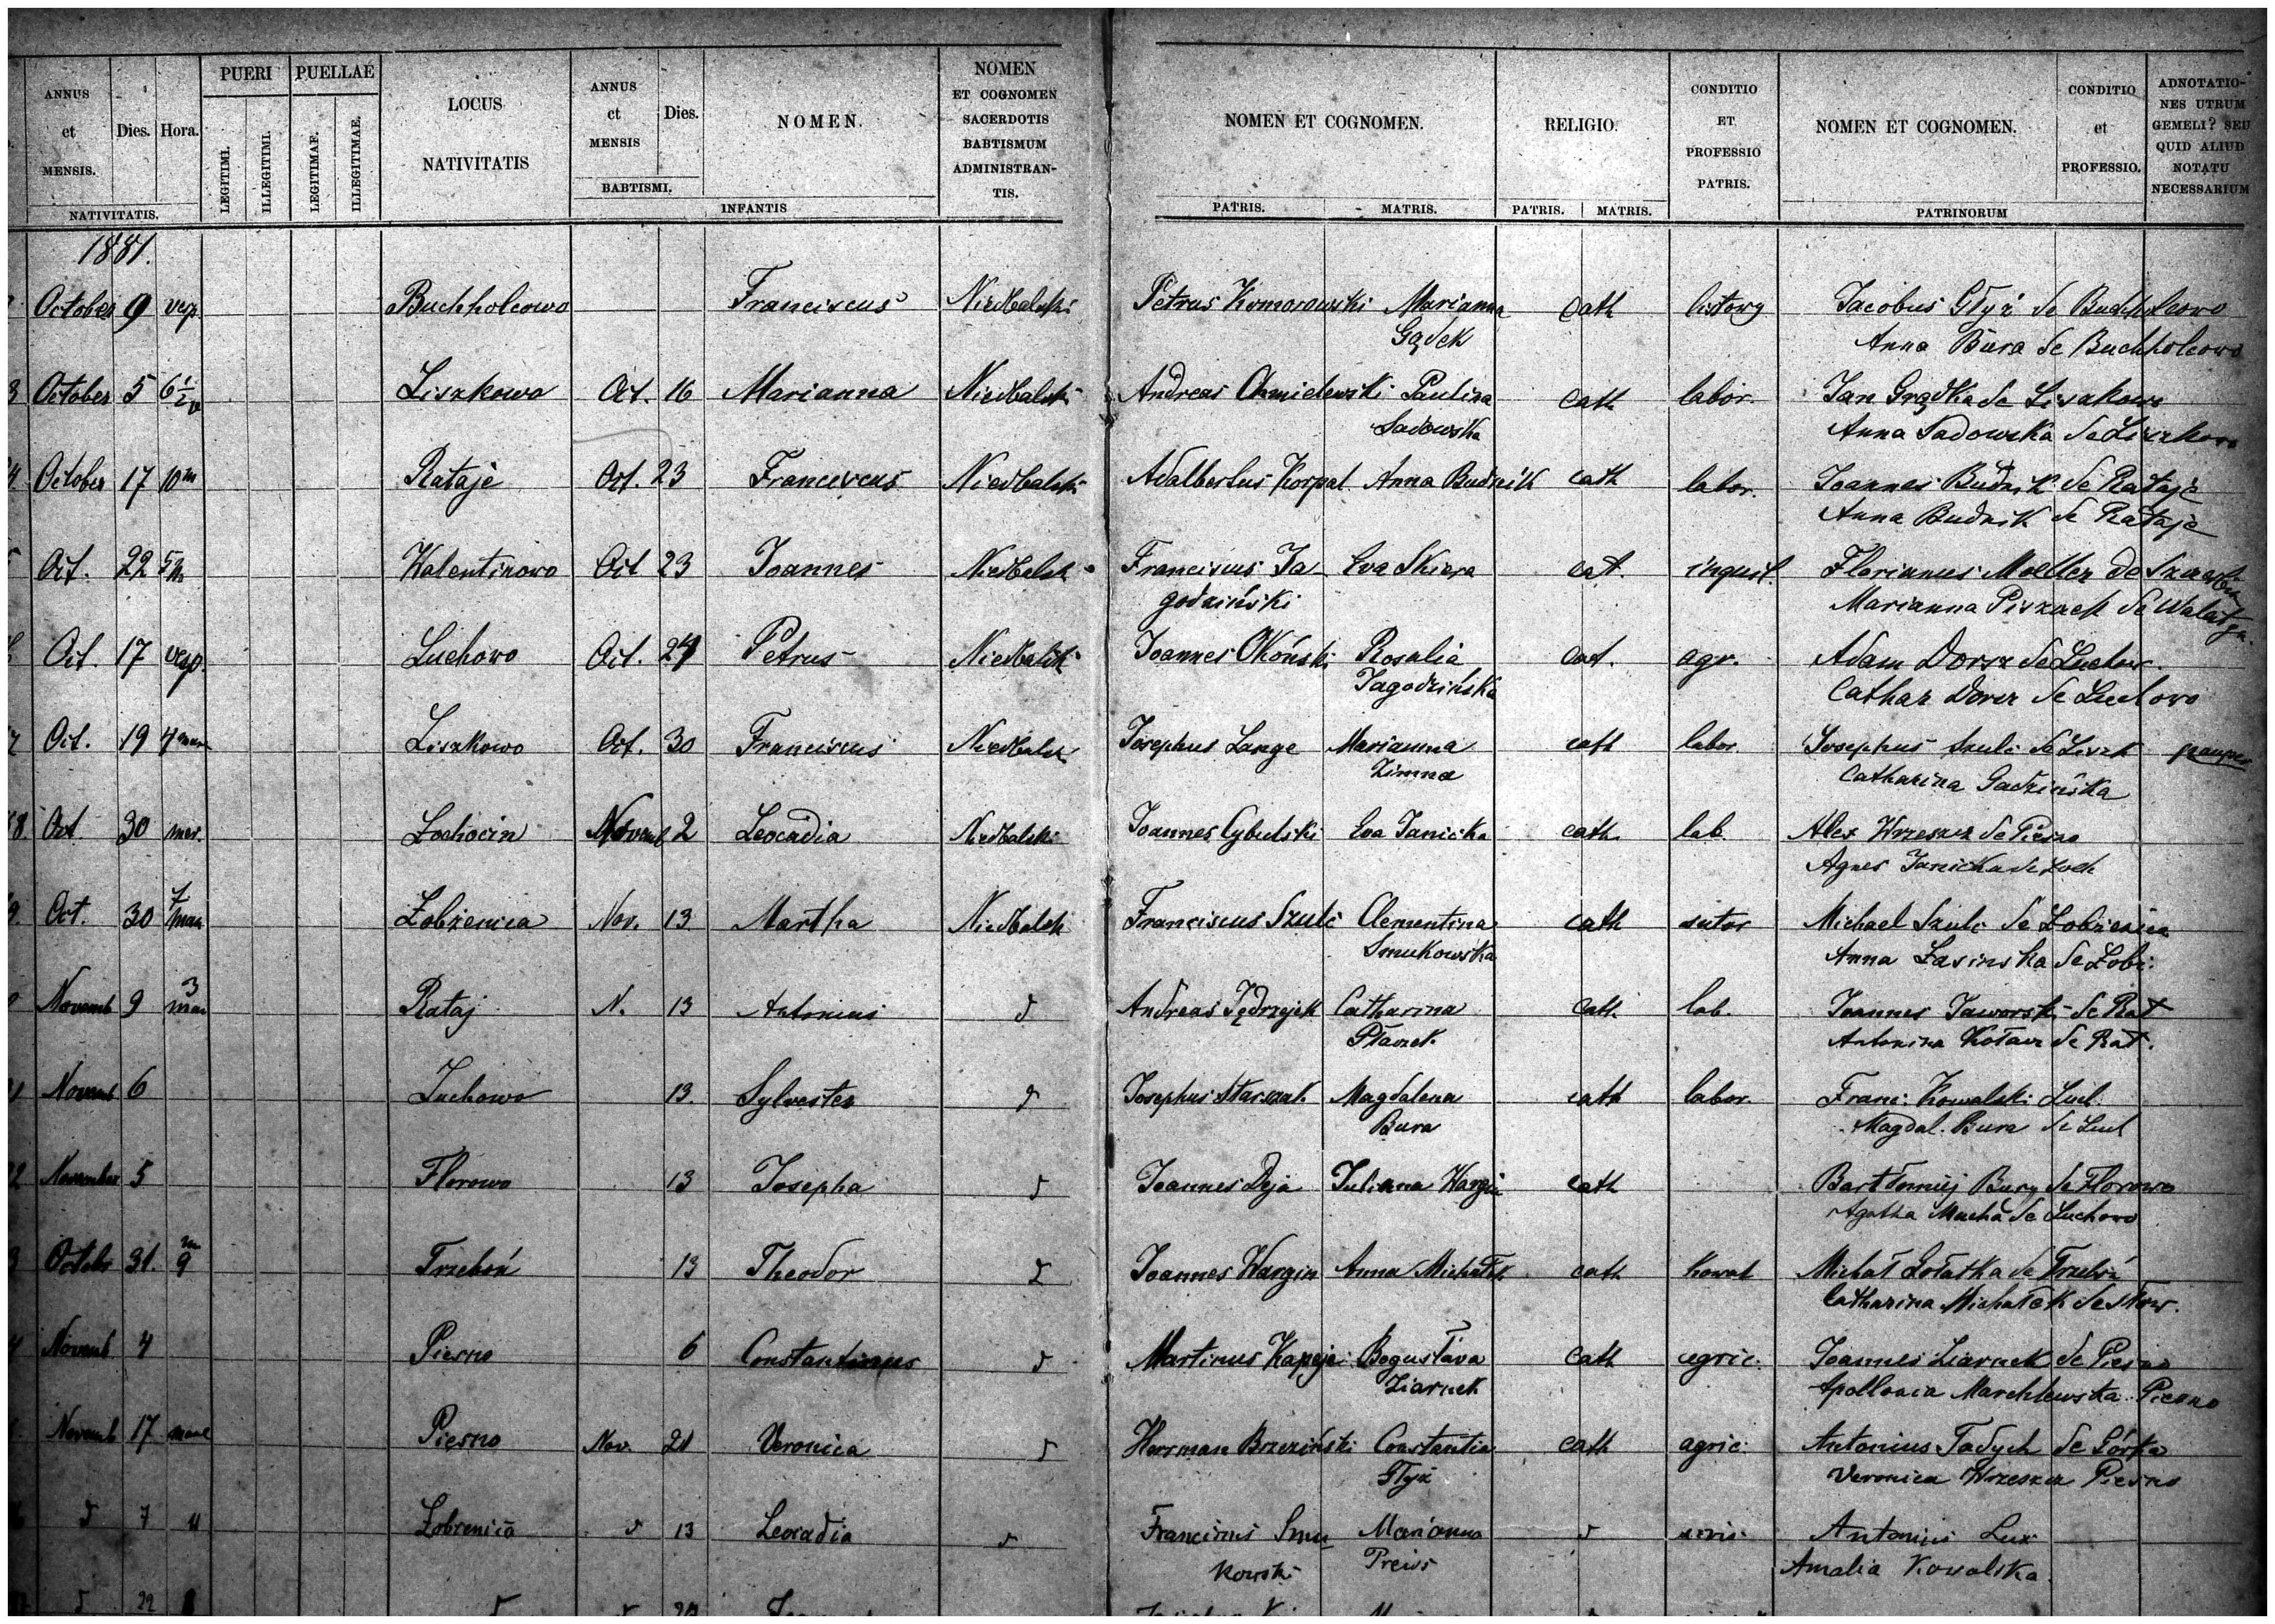 ANNUS et MENSIS. Dies. Hora. NATIVITATIS.
PUERI LEGITIMI. ILLEGITIMI.
PUELLAE LEGITIMAE. ILLEGITIMAE.
LOCUS NATIVITATIS
ANNUS et MENSIS Dies. BABTISMI.
NOMEN. INFANTIS
NOMEN ET COGNOMEN SACERDOTIS BABTISMUM ADMINISTRAN-TIS.
NOMEN ET COGNOMEN. PATRIS. MATRIS.
RELIGIO. PATRIS. MATRIS.
CONDITIO ET PROFESSIO PATRIS.
NOMEN ET COGNOMEN. CONDITIO et PROFESSIO. PATRINORUM
ADNOTATIO-NES UTRUM GEMELI? SEU QUID ALIUD NOTATU NECESSARIUM
1881.
October 9 vesp. Buchholcowo Franciscus Niedbalski Petrus Komorowski Marianna cath listowy Jacobus Głyż de Buchholcowo
Gądek Anna Bura de Buchholcowo
October 5 6½ v Liszkowo Oct. 16 Marianna Niedbalski Andreas Chmielewski Paulina cath labor. Jan Grądka de Liszkowo
Sadowska Anna Sadowska de Liszkowo
October 17 10 m Rataje Oct. 23 Franciscus Niedbalski Adalbertus Korpal Anna Budnik cath labor. Joannes Budnik de Rataje
Anna Budnik de Rataje
Oct. 22 5 m Walentinowo Oct 23 Joannes Niedbalski Franciscus Ja- Eva Skiera cat. inquil. Florianus Moeller de
godziński Marianna Piszack de
Oct. 17 vesp. Luchowo Oct. 24 Petrus Niedbalski Joannes Okoński Rosalia cat. agr. Adam Dorsz de Luchow.
Jagodzińska Cathar Dorsz de Luchowo
Oct. 19 4 mane Liszkowo Oct. 30 Franciscus Niedbalski Josephus Lange Marianna cath labor. Josephus Szulc de Liszk pauper
Zimna Catharina Gadzińska
8 Oct 30 mer. Lochocin Novemb 2 Leocadia Niedbalski Joannes Cybulski Eva Janicka cath lab. Alex Wrzeszcz de Piesno
Agnes Janicka de Loch
9. Oct. 30 7 man Łobżenica Nov. 13 Martha Niedbalski Franciscus Szulc Clementina cath sutor Michael Szulc de Łobżenica
Smukowska Anna Łasinska de Łobż.
Novemb 9 3 man Rataj N. 13 Antonius d Andreas Jędrzejek Catharina cath. lab. Joannes Jaworski de Rat
Ptaszek Antonina de Rat.
Novemb 6 Luchowo 13. Sylvester d Josephus Magdalena cath labor. Franc. Kowalski Luch.
Bura Magdal. Bura de Luch
November 5 Florowo 13 Josepha d Joannes Deja Julianna Wargin cath Bartłomiej Bury de Florowo
Agatha Macha de Luchowo
Octobr 31. m 9 Trzeboń 13 Theodor d Joannes Wargin Anna Michałek cath kowal Michał de Trzeboń
Catharina Michałek de
Novemb 4 Piesno 6 Constantinus d Martinus Kapeja Bogusława cath agric. Joannes Ziarnek de Piesno
Ziarnek Apollonia Marchlewska Piesno
Novemb 17 mane Piesno Nov. 21 Veronica d Herrman Brzeziński Constantia cath agric. Antonius Tadych de Górka
Głyż Veronica Wrzeszcz Piesno
d 7 4 Łobżenica d 13 Leocadia d Franciscus Smu- Marianna d Antonius Lux
kowski Preiss Amalia Kowalska.
d 22 8 d d